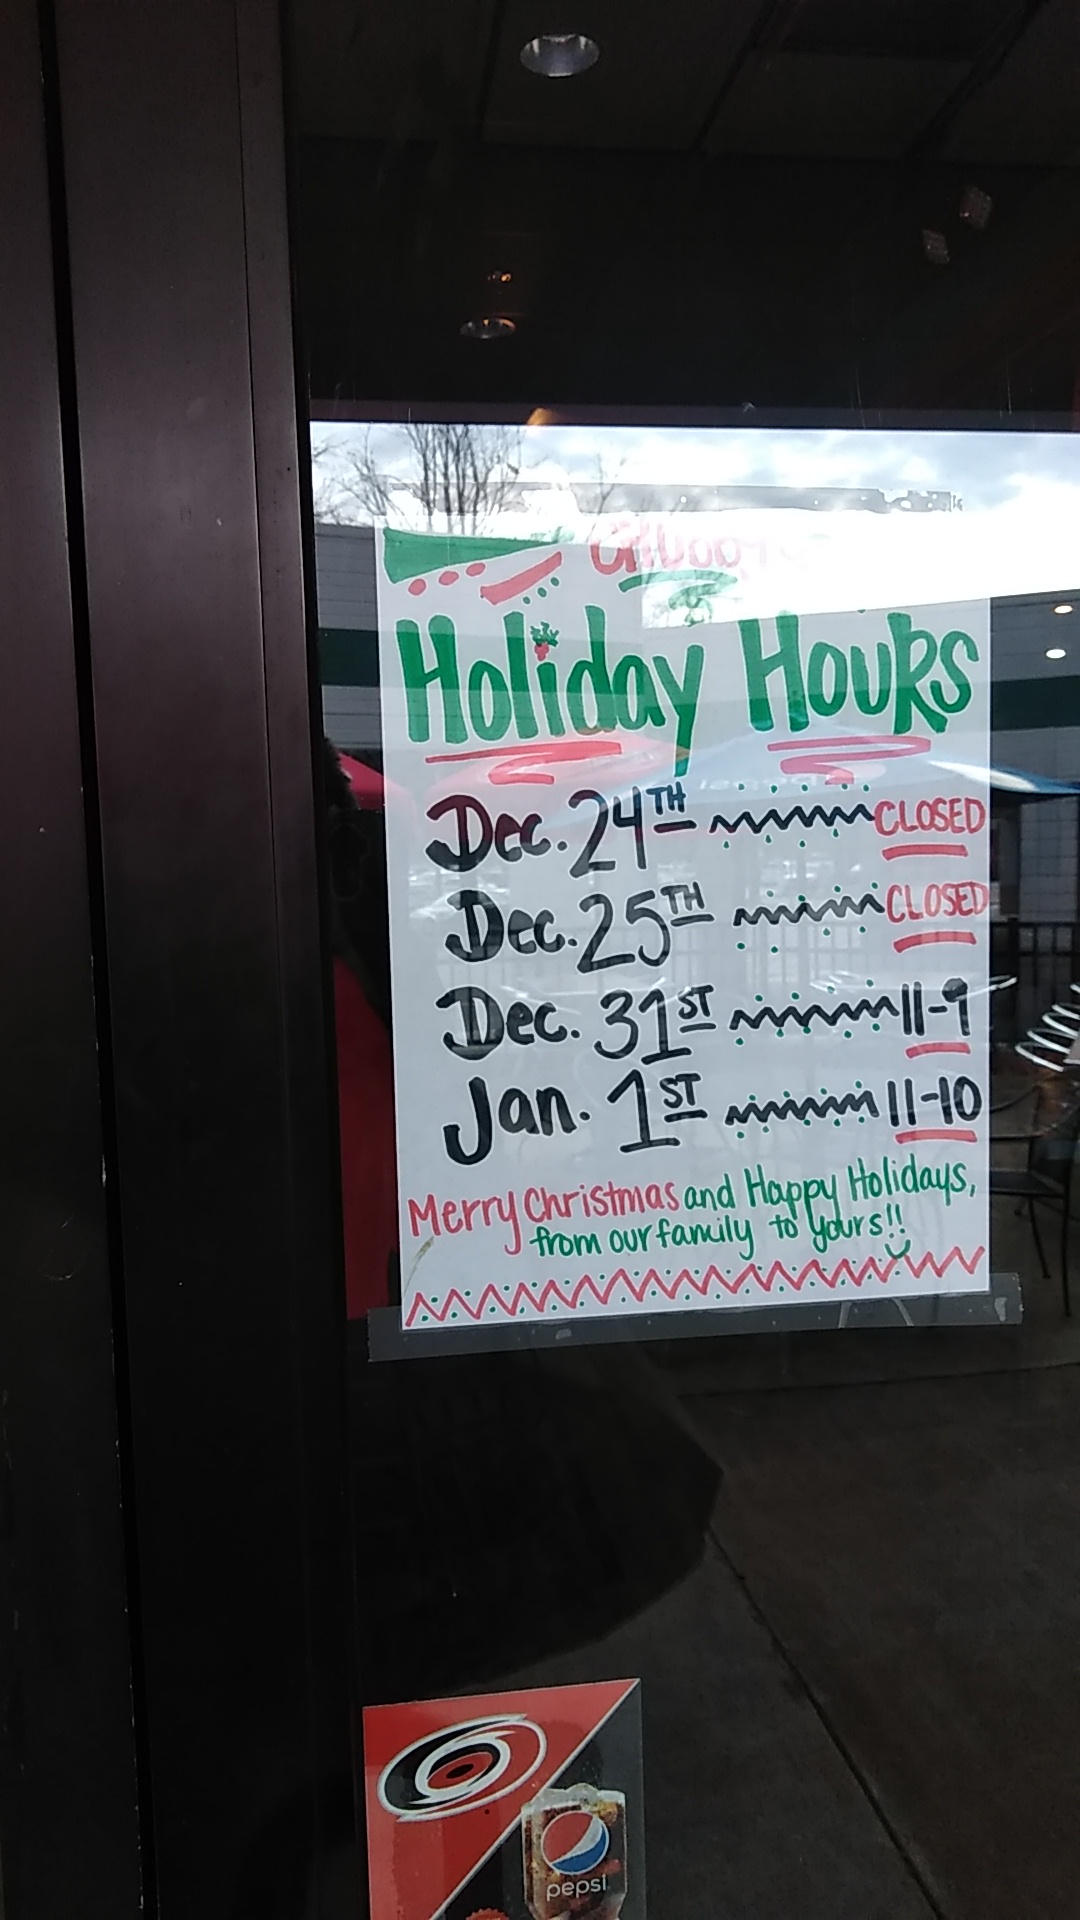 Holiday Hours
Dec. 24TH CLOSED
Dec. 25TH CLOSED
Dec. 31ST 11-9
Jan. 1ST 11-10
Merry Christmas and Happy Holidays,
from our family to yours!!
pepsi